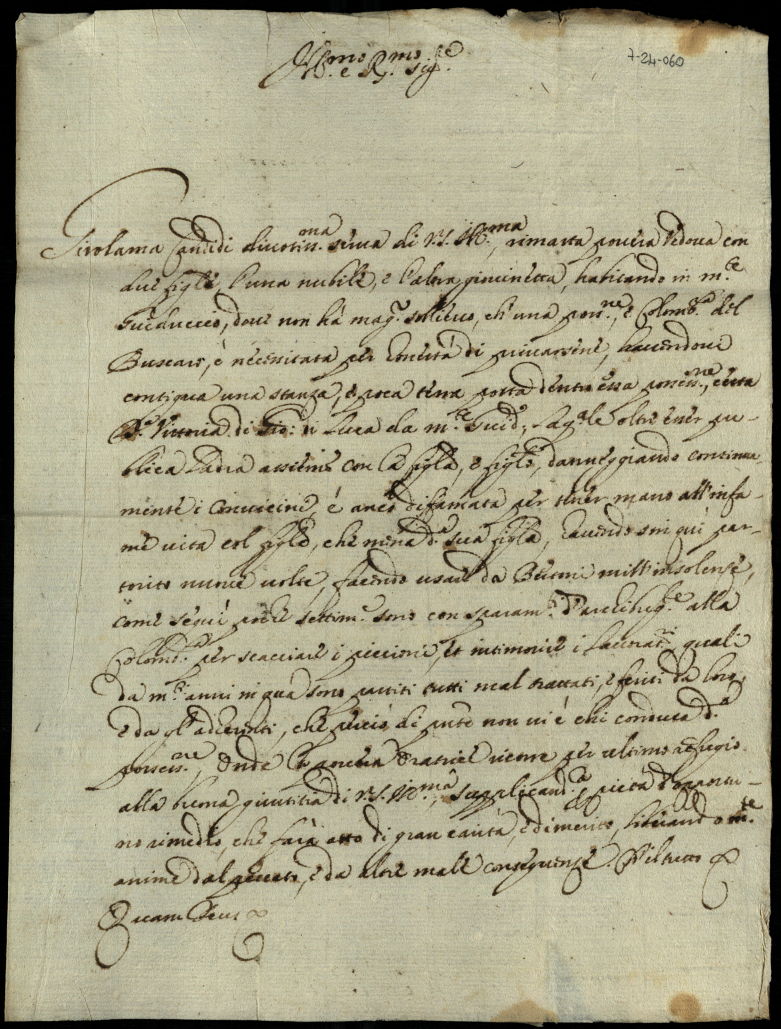 Ill.mo e R.mo Sig.re
7-24-060
Girolama Candidi divotiss.ma serva di V.S. Ill.ma, rimasta povera vedova con
due figle, l'una nubile, e l'altra giovinetta, habitando in m.te
Guiduccio, dove non hà mag.r sollievo, ch'una poss.ne, e Colomb.a del
è necessitata per di privarsene, havendovi
contigua una stanza, e poca terra posta dentro essa posses.ne, certa
Vittoria di Gio: di Luca da m.te Guid.o, la q.le oltre esser pu-
blica ladra assieme con la figla, e figlo, danneggiando continua-
mente i Convicini, è anco difamata per tener mano all'infa-
me vita col figlo, che mena d.a sua figla, havendo sin quì par-
torito nuove volte, facendo usare da mill'insolenze,
come seguì poche settim.e sono con sparam.ti d'archibug.te alla
Colomb.a per scacciare i piccioni, et intimorire i lavorat.ri quali
da m.ti anni in quà sono partiti tutti mal trattati, e feriti da loro,
e da gl'aderenti, che perciò di p.nte non vi è chi conduca d.a
posses.ne, Onde la povera Oratrice ricorre per ultimo refugio
alla buona giustitia di V.S. Ill.ma, supplicand.a pietà d'opportu-
no rimedio, che farà atto di gran carità, e di merito, liberando m.te
anime dal peccato, e da altre male conseguenze. Ch'il tutto &
Quam Deus &